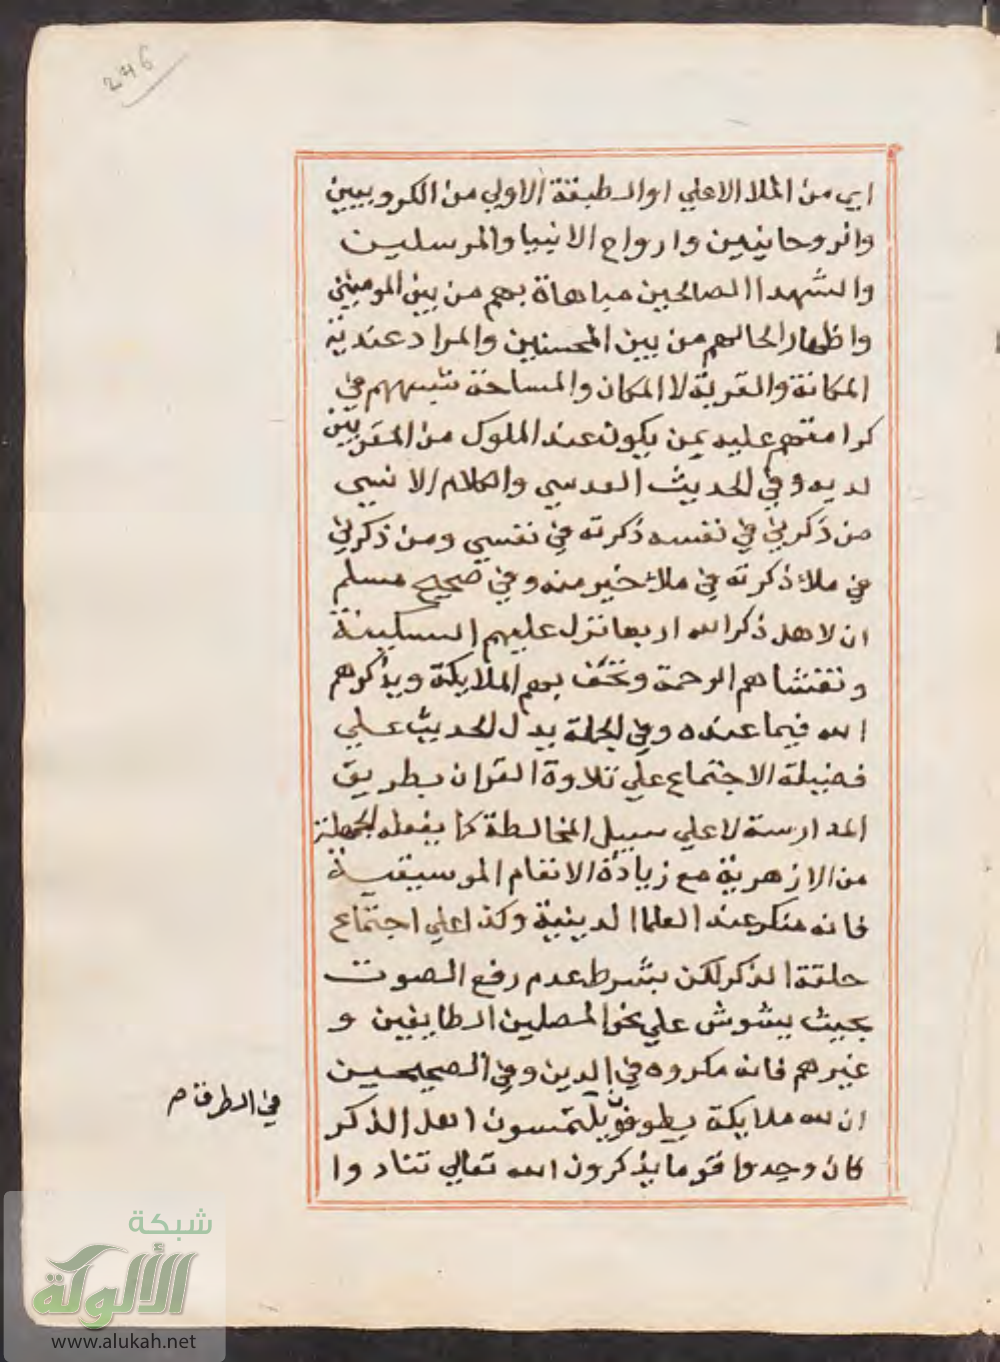 246
اي من الملا الاعلي او الطبقة الاولي من الكروبيين
والروحانيين وارواح الانبيا والمرسلين
والشهدا الصالحين مباهاة بهم من بين المومنين
واظهار الحالهم من بين المحسنين والمراد عندية
المكانة والقربة لا المكان والمساحة شبههم في
كرامتهم عليه بمن يكون عند الملوك من المقربين
لديه وفي الحديث القدسي والكلام الانسي
من ذكرني في نفسه ذكرته في نفسي ومن ذكرني
في ملاء ذكرته في ملاء خير منه وفي صحيح مسلم
ان لاهل ذكر الله اربعا تنزل عليهم السكينة
وتغشاهم الرحمة وتحف بهم الملايكة ويذكرهم
الله فيما عنده وفي الجملة يدل الحديث علي
فضيلة الاجتماع علي تلاوة القران بطريق
المدارسة لا علي سبيل المخالطة كما يفعله الجهلة
من الازهرية مع زيادة الانغام الموسيقية
فانه منكر عند العلما الدينية وكذا علي اجتماع
حلقة الذكر لكن بشرط عدم رفع الصوت
بحيث يشوش علي نحو المصلين الطايفين و
غيرهم فانه مكروه في الدين وفي الصحيحين
ان لله ملايكة يطوفون يلتمسون اهل الذكر
في الطرقات صح
فان وجدوا قوما يذكرون الله تعالي تنادوا
شبكة
الألوكة
www.alukah.net